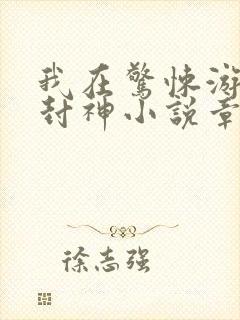 我在驚悚游
封神小說章
徐志强